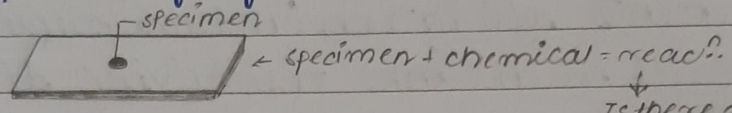 specimen
← specimen + chemical = reacⁿ.
↓